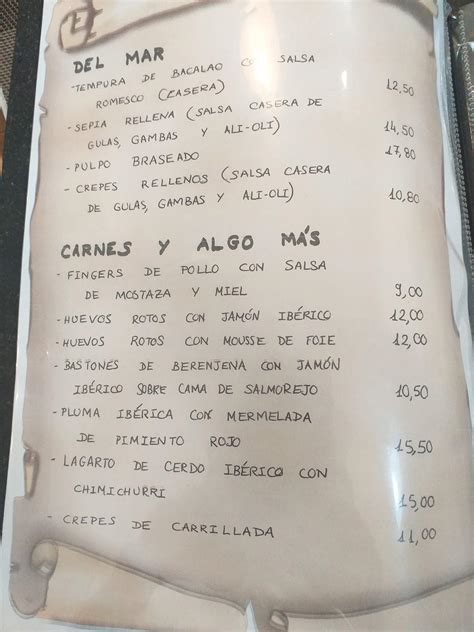 DEL MAR
-TEMPURA DE BACALAO CON SALSA
ROMESCO (CASERA) 12,50
- SEPIA RELLENA (SALSA CASERA DE
GULAS, GAMBAS Y ALI-OLI) 14,50
- PULPO BRASEADO 17,80
- CREPES RELLENOS (SALSA CASERA
DE GULAS, GAMBAS Y ALI-OLI) 10,80
CARNES Y ALGO MÁS
- FINGERS DE POLLO CON SALSA
DE MOSTAZA Y MIEL 9,00
- HUEVOS ROTOS CON JAMÓN IBÉRICO 12,00
- HUEVOS ROTOS CON MOUSSE DE FOIE 12,00
- BASTONES DE BERENJENA CON JAMÓN
IBÉRICO SOBRE CAMA DE SALMOREJO 10,50
- PLUMA IBÉRICA CON MERMELADA
DE PIMIENTO ROJO 15,50
- LAGARTO DE CERDO IBÉRICO CON
CHIMICHURRI 15,00
- CREPES DE CARRILLADA 11,00